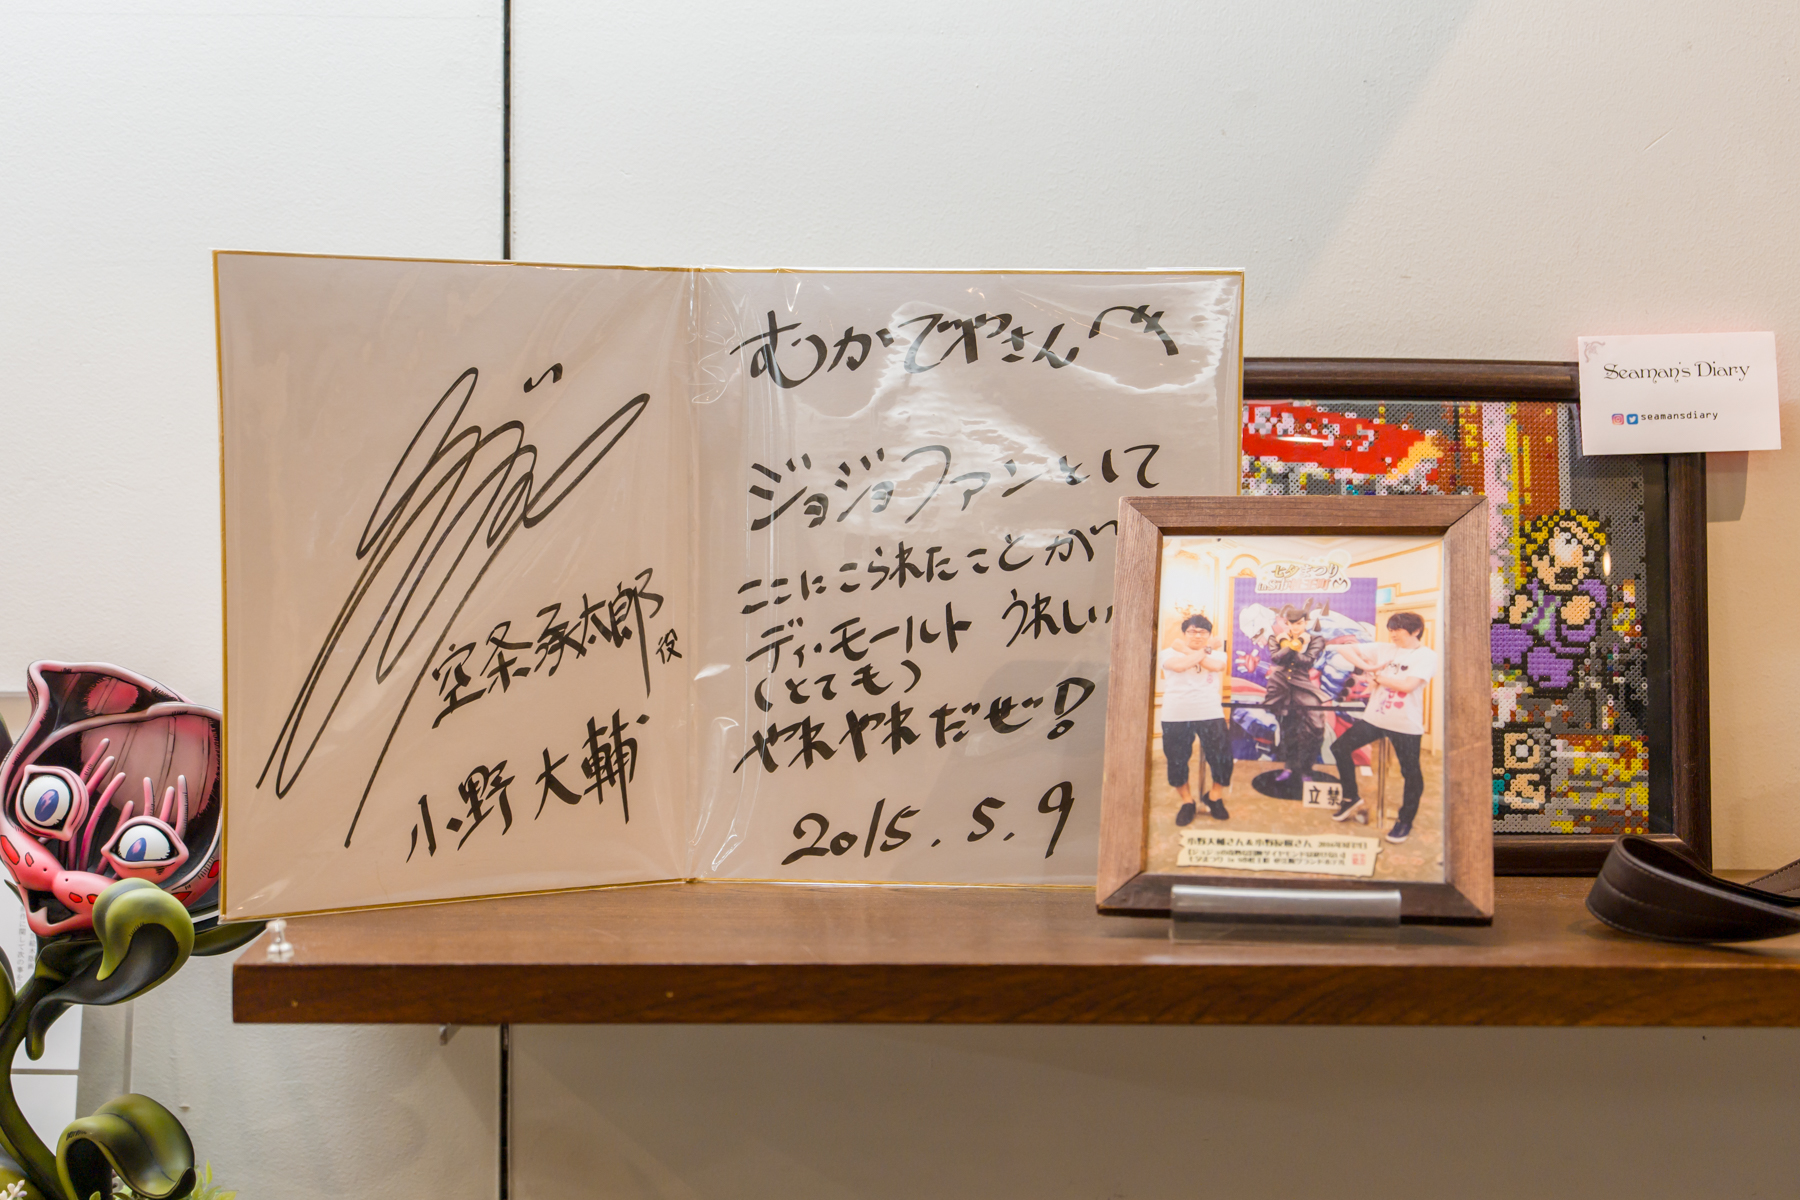 空条承太郎役
小野大輔
むかでやさんへ
ジョジョファンとして
ここにこられたことが
ディ・モールト うれしい
(とても)
やれやれだぜ!
2015.5.9
Seaman's Diary
seamansdiary
七夕まつり
立禁
小野大輔さん&小野友樹さん